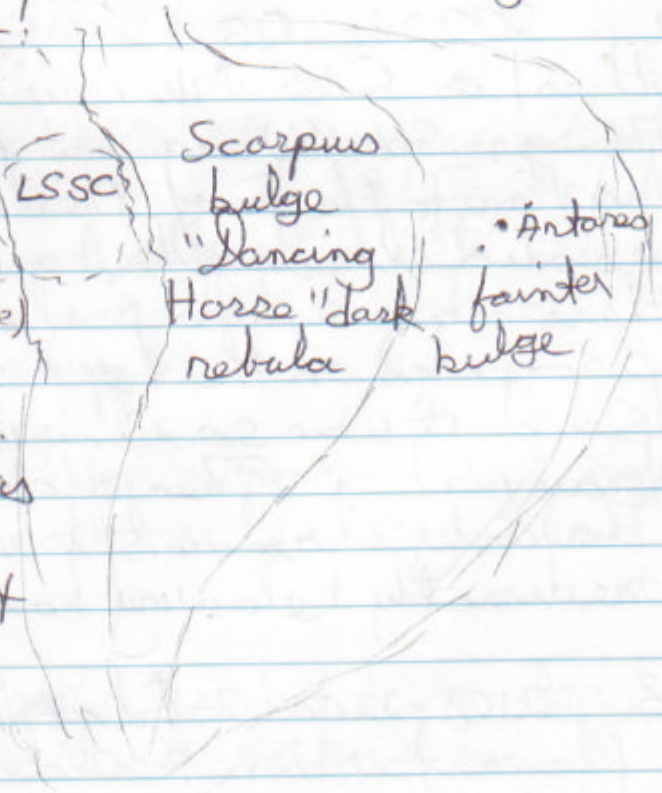 !
LSSC
Scorpius
bulge
"Dancing
Horse" dark
nebula
• Antares
fainter
bulge
e)
t